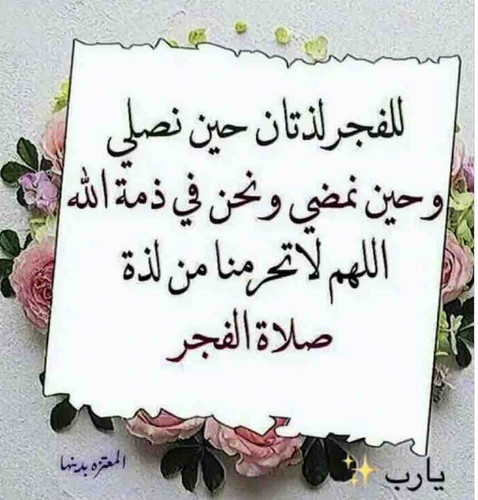 للفجر لذتان حين نصلي
وحين نمضي ونحن في ذمة الله
اللهم لا تحرمنا من لذة
صلاة الفجر
المعتزه بدينها
يارب